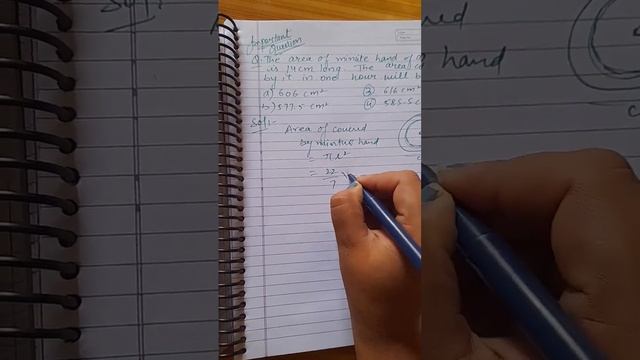 Important
Question
Q. The area of minute hand of a
is 14 cm long. The area co
by it in one hour will b
a) 606 cm²
③ 616 cm²
b) 577.5 cm²
④ 585.5 c
Sol:-
Area of covered
by minute hand
= πr²
= 22/7 ×